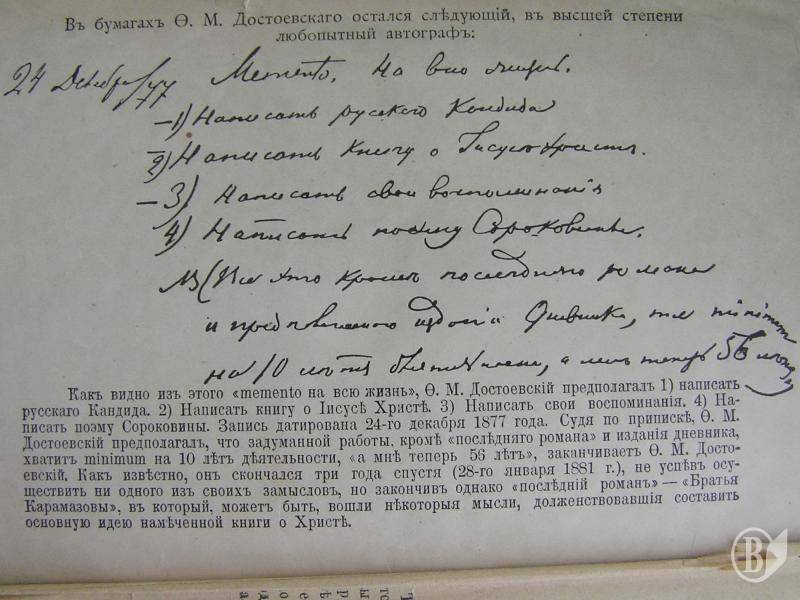 Въ бумагахъ Ѳ. М. Достоевскаго остался слѣдующій, въ высшей степени
любопытный автографъ:
24 Декабря/77 Memento. На всю жизнь.
1) Написать русскаго Кандида
2) Написать книгу о Іисусѣ Христѣ.
3) Написать свои воспоминанія
4) Написать поэму Сороковины.
NB (Все это кромѣ послѣдняго романа
и предполагаемаго изданія Дневника, т. е. minimum
на 10 лѣтъ дѣятельности, а мнѣ теперь 56 лѣтъ)
Какъ видно изъ этого «memento на всю жизнь», Ѳ. М. Достоевскій предполагалъ 1) написать
русскаго Кандида. 2) Написать книгу о Іисусѣ Христѣ. 3) Написать свои воспоминанія. 4) На-
писать поэму Сороковины. Запись датирована 24-го декабря 1877 года. Судя по припискѣ, Ѳ. М.
Достоевскій предполагалъ, что задуманной работы, кромѣ «послѣдняго романа» и изданія дневника,
хватитъ minimum на 10 лѣтъ дѣятельности, «а мнѣ теперь 56 лѣтъ», заканчиваетъ Ѳ. М. Досто-
евскій. Какъ извѣстно, онъ скончался три года спустя (28-го января 1881 г.), не успѣвъ осу-
ществить ни одного изъ своихъ замысловъ, но закончивъ однако «послѣдній романъ» — «Братья
Карамазовы», въ который, можетъ быть, вошли нѣкоторыя мысли, долженствовавшія составить
основную идею намѣченной книги о Христѣ.
В